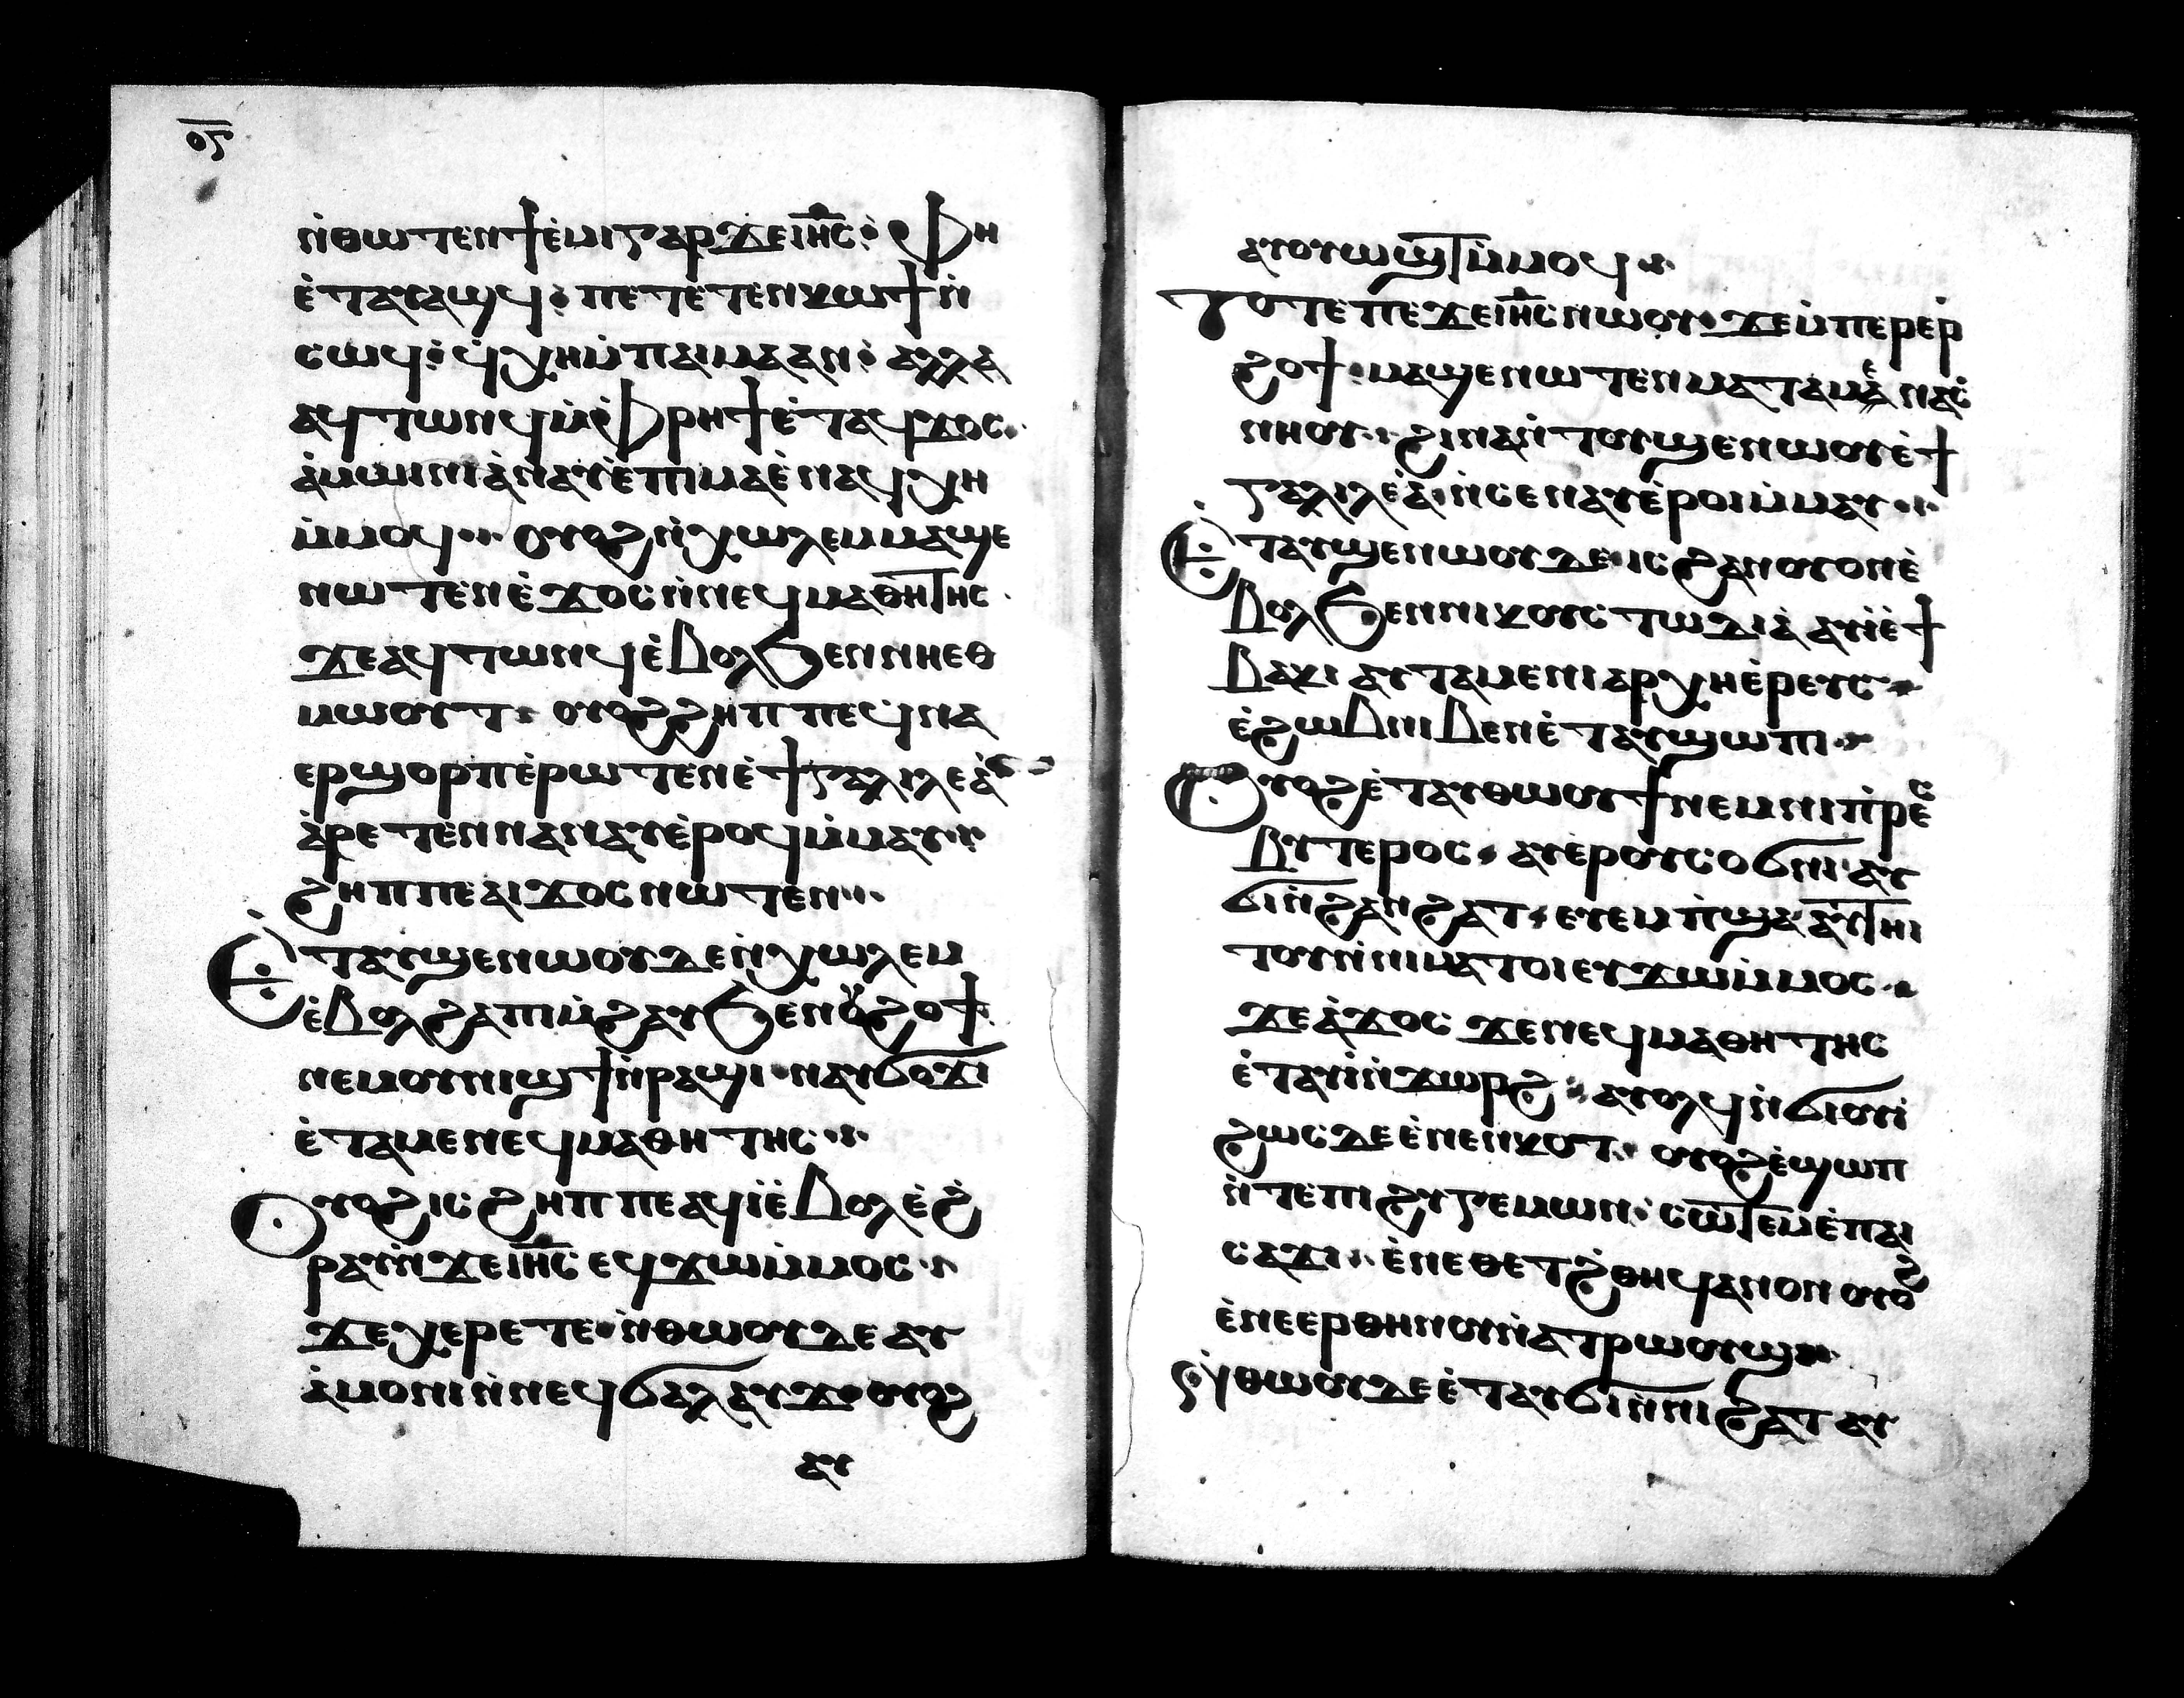 ⲟ̅ⲋ̅
ⲛ̀ⲑⲱⲧⲉⲛϯⲉ̀ⲙⲓⲅⲁⲣϫⲉⲓⲏ̅ⲥ̅: Ⲫⲏ
ⲉ̀ⲧⲁⲩⲁϣϥ: ⲡⲉⲧⲉ̀ⲧⲉⲛⲕⲱϯⲛ̀
ⲥⲱϥ: ϥ̀ⲭⲏⲙ̀ⲡⲁⲓⲙⲁⲁⲛ: ⲁⲗⲗⲁ
ⲁϥⲧⲱⲛϥⲙ̀Ⲫⲣⲏϯⲉ̀ⲧⲁϥϫⲟⲥ.
ⲁ̀ⲙⲱⲓⲛⲓⲁ̀ⲛⲁⲩⲉ̀ⲡⲓⲙⲁⲉ̀ⲛⲁϥⲭⲏ
ⲙ̀ⲙⲟϥ··· ⲟⲩⲟϩⲛ̀ⲭⲱⲗⲉⲙⲙⲁϣⲉ
ⲛⲱⲧⲉⲛⲉ̀ϫⲟⲥⲛ̀ⲛⲉϥⲙⲁⲑⲏⲧⲏⲥ
ϫⲉⲁϥⲧⲱⲛϥⲉ̀ⲃⲟⲗϧⲉⲛⲛⲏⲉⲑ
ⲙⲱⲟⲩⲧ: ⲟⲩⲟϩϩⲏⲡⲡⲉϥ̀ⲛⲁ
ⲉⲣϣⲟⲣⲡⲉ̀ⲣⲱⲧⲉⲛⲉ̀ϯⲅⲁⲗⲓⲗⲉⲁ̀
ⲁ̀ⲣⲉⲧⲉⲛⲛⲁⲛⲁⲩⲉ̀ⲣⲟϥⲙ̀ⲙⲁⲩ··
ϩⲏⲡⲡⲉⲁⲓϫⲟⲥⲛⲱⲧⲉⲛ···
Ⲉ̀ⲧⲁⲩϣⲉⲛⲱⲟⲩⲇⲉⲛ̀ⲭⲱⲗⲉⲙ
ⲉ̀ⲃⲟⲗϩⲁⲡⲓⲙ̀ϩⲁⲩϧⲉⲛⲟⲩϩⲟϯ
ⲛⲉⲙⲟⲩⲛⲓϣϯⲛ̀ⲣⲁϣⲓ·ⲛⲁⲩϭⲟϫⲓ
ⲉ̀ⲧⲁⲙⲉⲛⲉϥⲙⲁⲑⲏⲧⲏⲥ··
Ⲟⲩⲟϩⲓⲥϩⲏⲡⲡⲉⲁϥⲓ̀ⲉ̀ⲃⲟⲗⲉ̀ϩ̀
ⲣⲁⲩⲛ̀ϫⲉⲓⲏ̅ⲥ̅ⲉϥϫⲱⲙ̀ⲙⲟⲥ··
ϫⲉⲭⲉⲣⲉⲧⲉ·ⲛ̀ⲑⲱⲟⲩⲇⲉⲁⲩ
ⲁ̀ⲙⲟⲛⲓⲛ̀ⲛⲉϥϭⲁⲗⲁⲩϫ·ⲟⲩⲟϩ
ⲁⲩ
ⲁⲩⲟⲩⲱϣⲧⲙ̀ⲙⲟϥ··
Ⲧⲟⲧⲉⲡⲉϫⲉⲓⲏ̅ⲥ̅ⲛⲱⲟⲩ·ϫⲉⲙ̀ⲡⲉⲣⲉⲣ
ϩⲟϯ·ⲙⲁϣⲉⲛⲱⲧⲉⲛⲙⲁⲧⲁⲙⲉ̀ⲛⲁⲥ̀
ⲛⲏⲟⲩ··ϩⲓⲛⲁⲛ̀ⲧⲟⲩϣⲉⲛⲱⲟⲩⲉ̀ϯ
ⲅⲁⲗⲓⲗⲉⲁ̀·ⲛ̀ⲥⲉⲛⲁⲩⲉ̀ⲣⲟⲓⲙ̀ⲙⲁⲩ···
Ⲉ̀ⲧⲁⲩϣⲉⲛⲱⲟⲩⲇⲉ·ⲓⲥϩⲁⲛⲟⲩⲟⲛⲉ̀
ⲃⲟⲗϧⲉⲛⲛⲓⲕⲟⲩⲥⲧⲱⲇⲓⲁ̀ⲁⲩⲓ̀ⲉ̀ϯ
ⲃⲁⲕⲓⲁⲩⲧⲁⲙⲉⲛⲓⲁⲣⲭⲏⲉ̀ⲣⲉⲩⲥ·
ⲉ̀ϩⲱⲃⲛⲓⲃⲉⲛⲉ̀ⲧⲁⲩϣⲱⲡⲓ··
Ⲟⲩⲟϩⲉ̀ⲧⲁⲩⲑⲱⲟⲩϯⲛⲉⲙⲛⲓⲡ̀ⲣⲉⲥ
ⲃⲩⲧⲉⲣⲟⲥ·ⲁⲩⲉ̀ⲣⲟⲩⲥⲟϭⲛⲓ·ⲁⲩ
ϭⲓⲛ̀ϩⲁⲛϩⲁⲧ·ⲉⲩⲉⲙⲡ̀ϣⲁⲁⲩⲧⲏⲓ
ⲧⲟⲩⲛ̀ⲛⲓⲙⲁⲧⲟⲓⲉⲩϫⲱⲙ̀ⲙⲟⲥ··
ϫⲉⲁ̀ϫⲟⲥ ϫⲉⲛⲉϥⲙⲁⲑⲏⲧⲏⲥ
ⲉ̀ⲧⲁⲩⲓ̀ⲛ̀ϫⲱⲣϩ ⲁⲩⲟⲗϥⲛ̀ϭⲓⲟⲩⲓ̀
ϩⲱⲥⲇⲉⲉ̀ⲛⲉⲛⲕⲟⲧ· ⲟⲩⲟϩⲉ̀ϣⲱⲡ
ⲛ̀ⲧⲉⲡⲓϩⲩⲅⲉⲙⲱⲛ·ⲥⲱⲧⲉⲙⲉ̀ⲡⲁⲓ
ⲥⲁϫⲓ··ⲉ̀ⲛⲉⲑⲉⲧϩ̀ⲑⲏϥⲁⲛⲟⲛⲟⲩⲟϩ
ⲉ̀ⲛⲉⲉⲣⲑⲏⲛⲟⲩⲛ̀ⲁⲧⲣⲱⲟⲩϣ··
Ⲛ̀ⲑⲱⲟⲩⲇⲉⲉ̀ⲧⲁⲩϭⲓⲛ̀ⲛⲓϩⲁⲧⲁⲩ